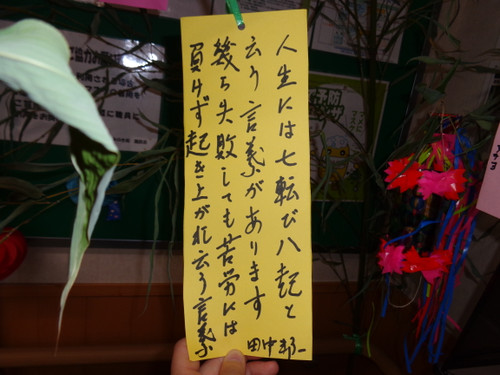 人生には七転び八起と
云う言葉があります
幾ら失敗しても苦労には
負けず起き上がれ云う言葉
田中邦一